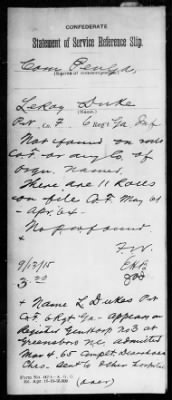 CONFEDERATE
Statement of Service Reference Slip.
Com Pen Ga.
LeRoy Duke
(Name.)
Pvt Co. F 6 Reg't Ga Inf
Not found on rolls
Co. F. or any Co. of
orgn. named.
There are 11 Rolls
on file Co. F. May 61
- Apr. 64 -
No prof found
+
F.W.
9/13/15
3
+ Name L Dukes Pvt
Co F 6 Regt Ga - appears on
Register Gen Hosp No 3 at
Greensboro NC, admitted
Mar 4. 65 Complt Diarrhoea
Chro. Sent to other hospital
(over)